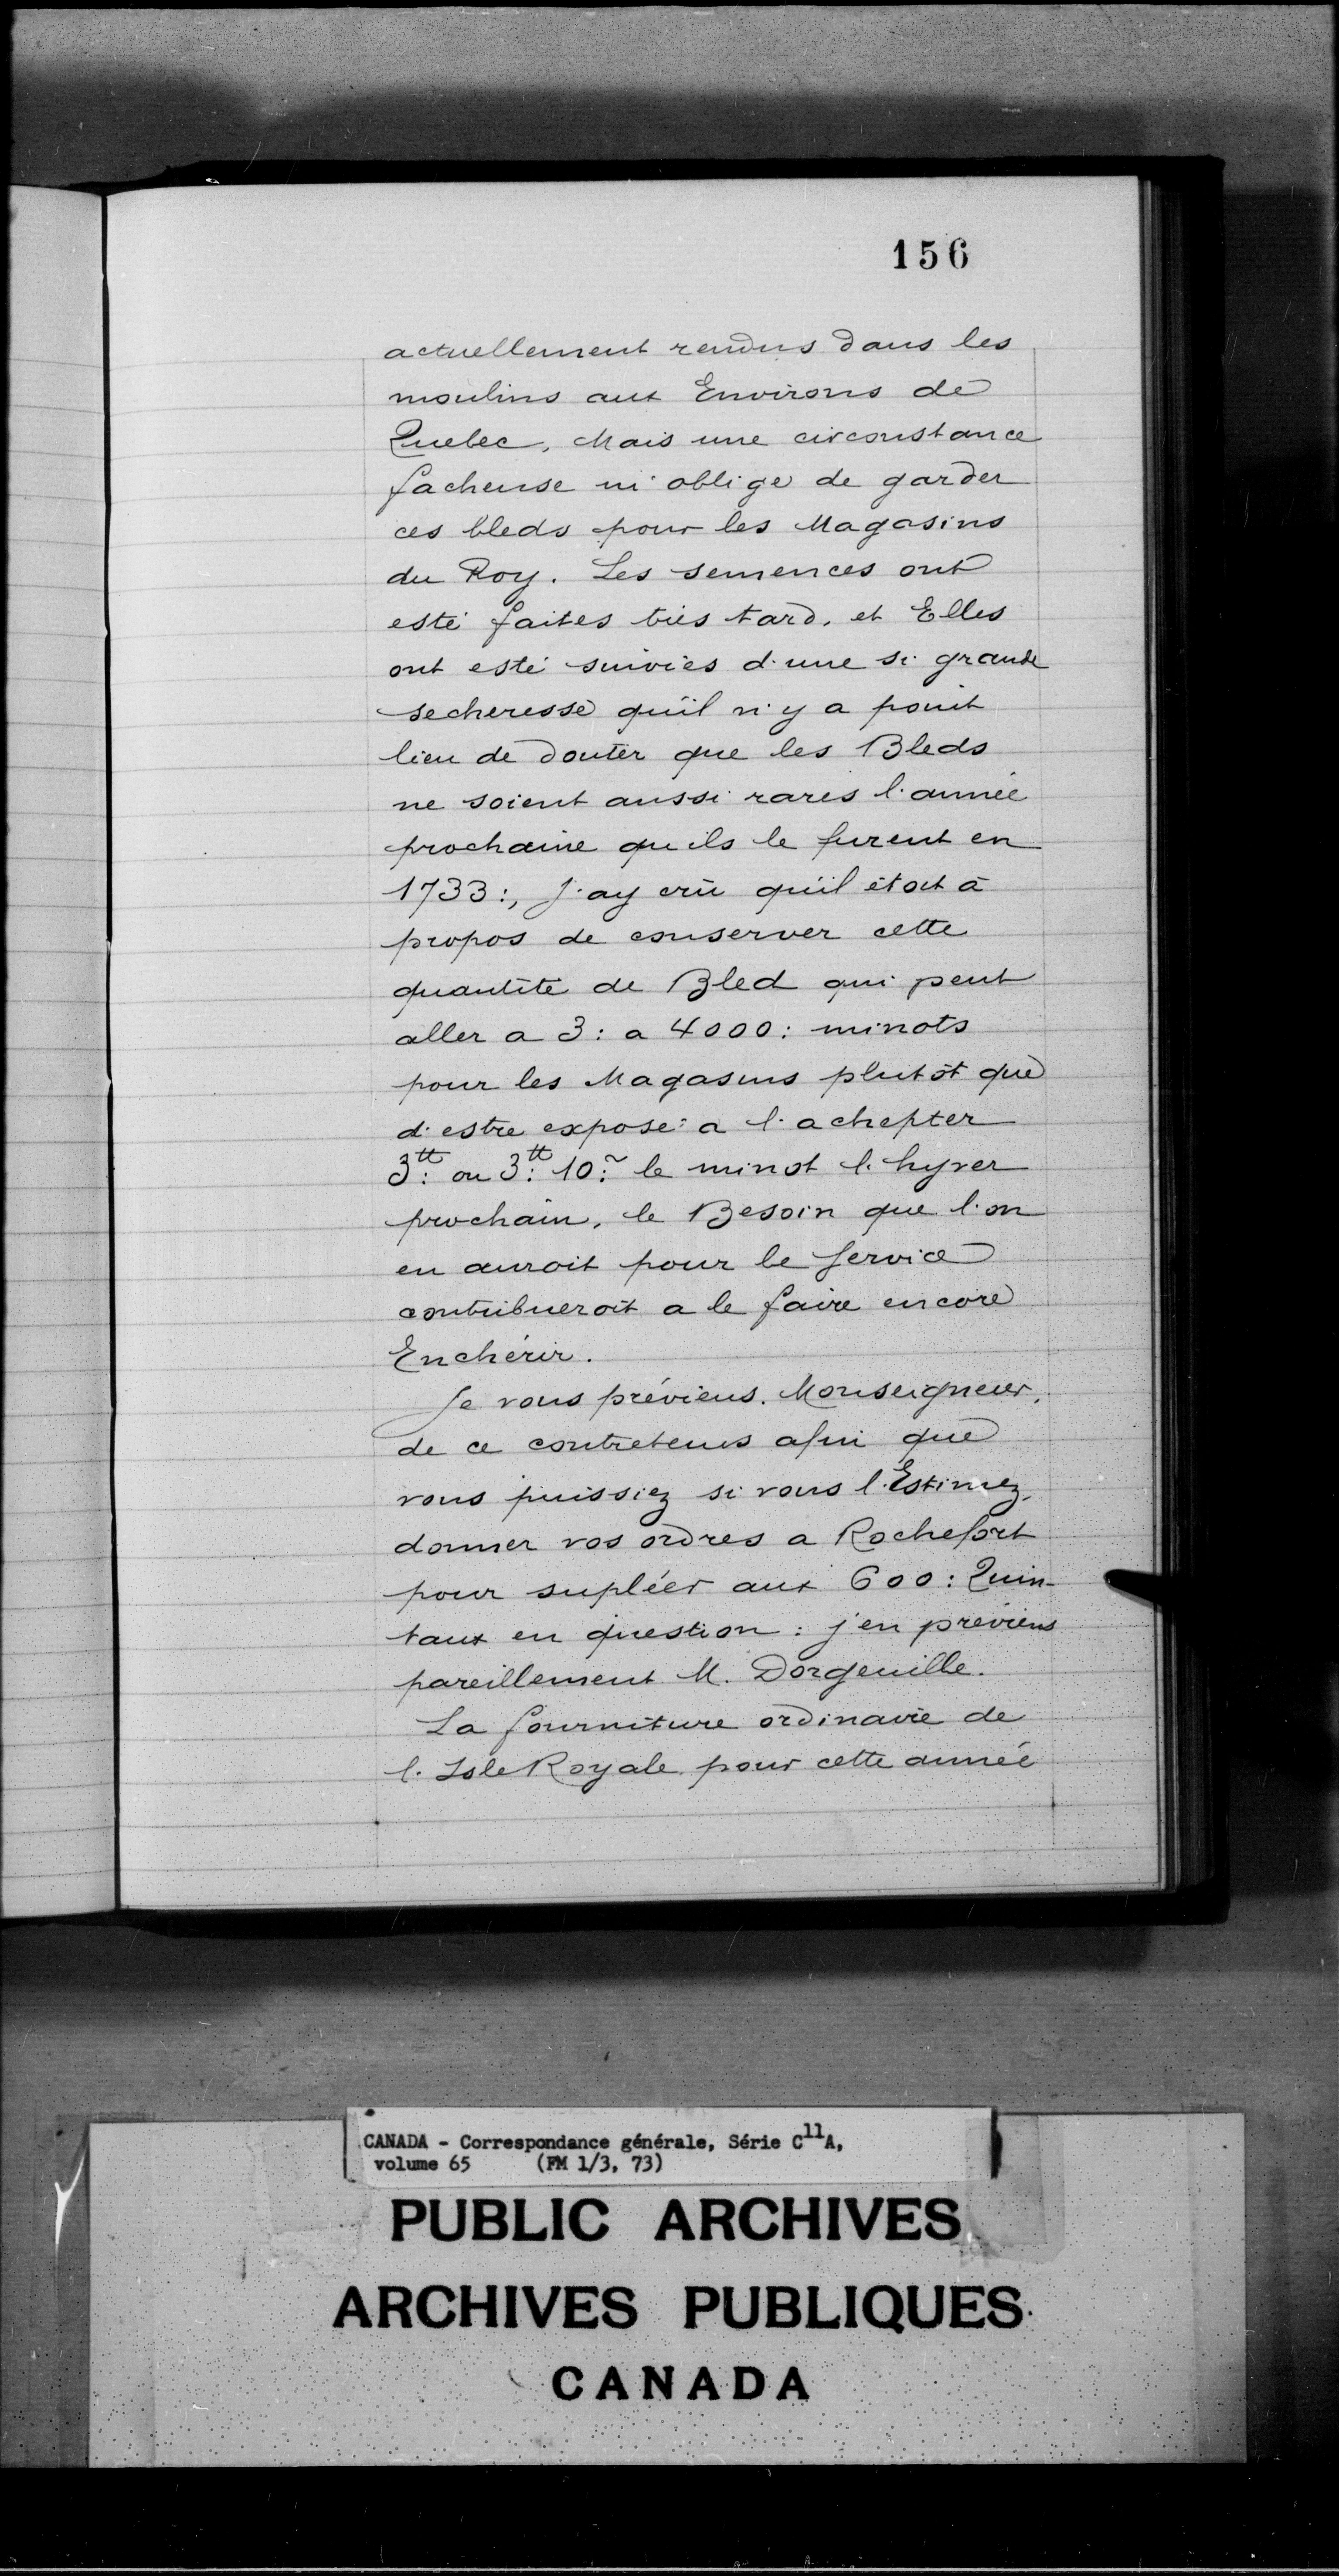 156
actuellement rendus dans les
moulins aux Environs de
Quebec, Mais une circonstance
facheuse m'oblige de garder
ces bleds pour les Magasins
du Roy. Les semences ont
esté faites très tard, et Elles
ont esté suivies d'une si grande
secheresse qu'il n'y a point
lieu de douter que les Bleds
ne soient aussi rares l'année
prochaine qu'ils le furent en
1733:, J'ay crû qu'il étoit à
propos de conserver cette
quantité de Bled qui peut
aller a 3: a 4000: minots
pour les Magasins plutôt que
d'estre exposé a l'achepter
3:tt ou 3:tt 10:~ le minot l'hyver
prochain, le Besoin que l'on
en auroit pour le Service
contribueroit a le faire encore
Enchérir.
Je vous préviens, Monseigneur,
de ce contretems afin que
vous puissiez si vous l'Estimez,
donner vos ordres a Rochefort
pour supléer aux 600: Quin-
taux en question: j'en préviens
pareillement M. Dorgeville.
La fourniture ordinaire de
l'Isle Royale pour cette année
CANADA - Correspondance générale, Série C11A,
volume 65 (FM 1/3, 73)
PUBLIC ARCHIVES
ARCHIVES PUBLIQUES
CANADA